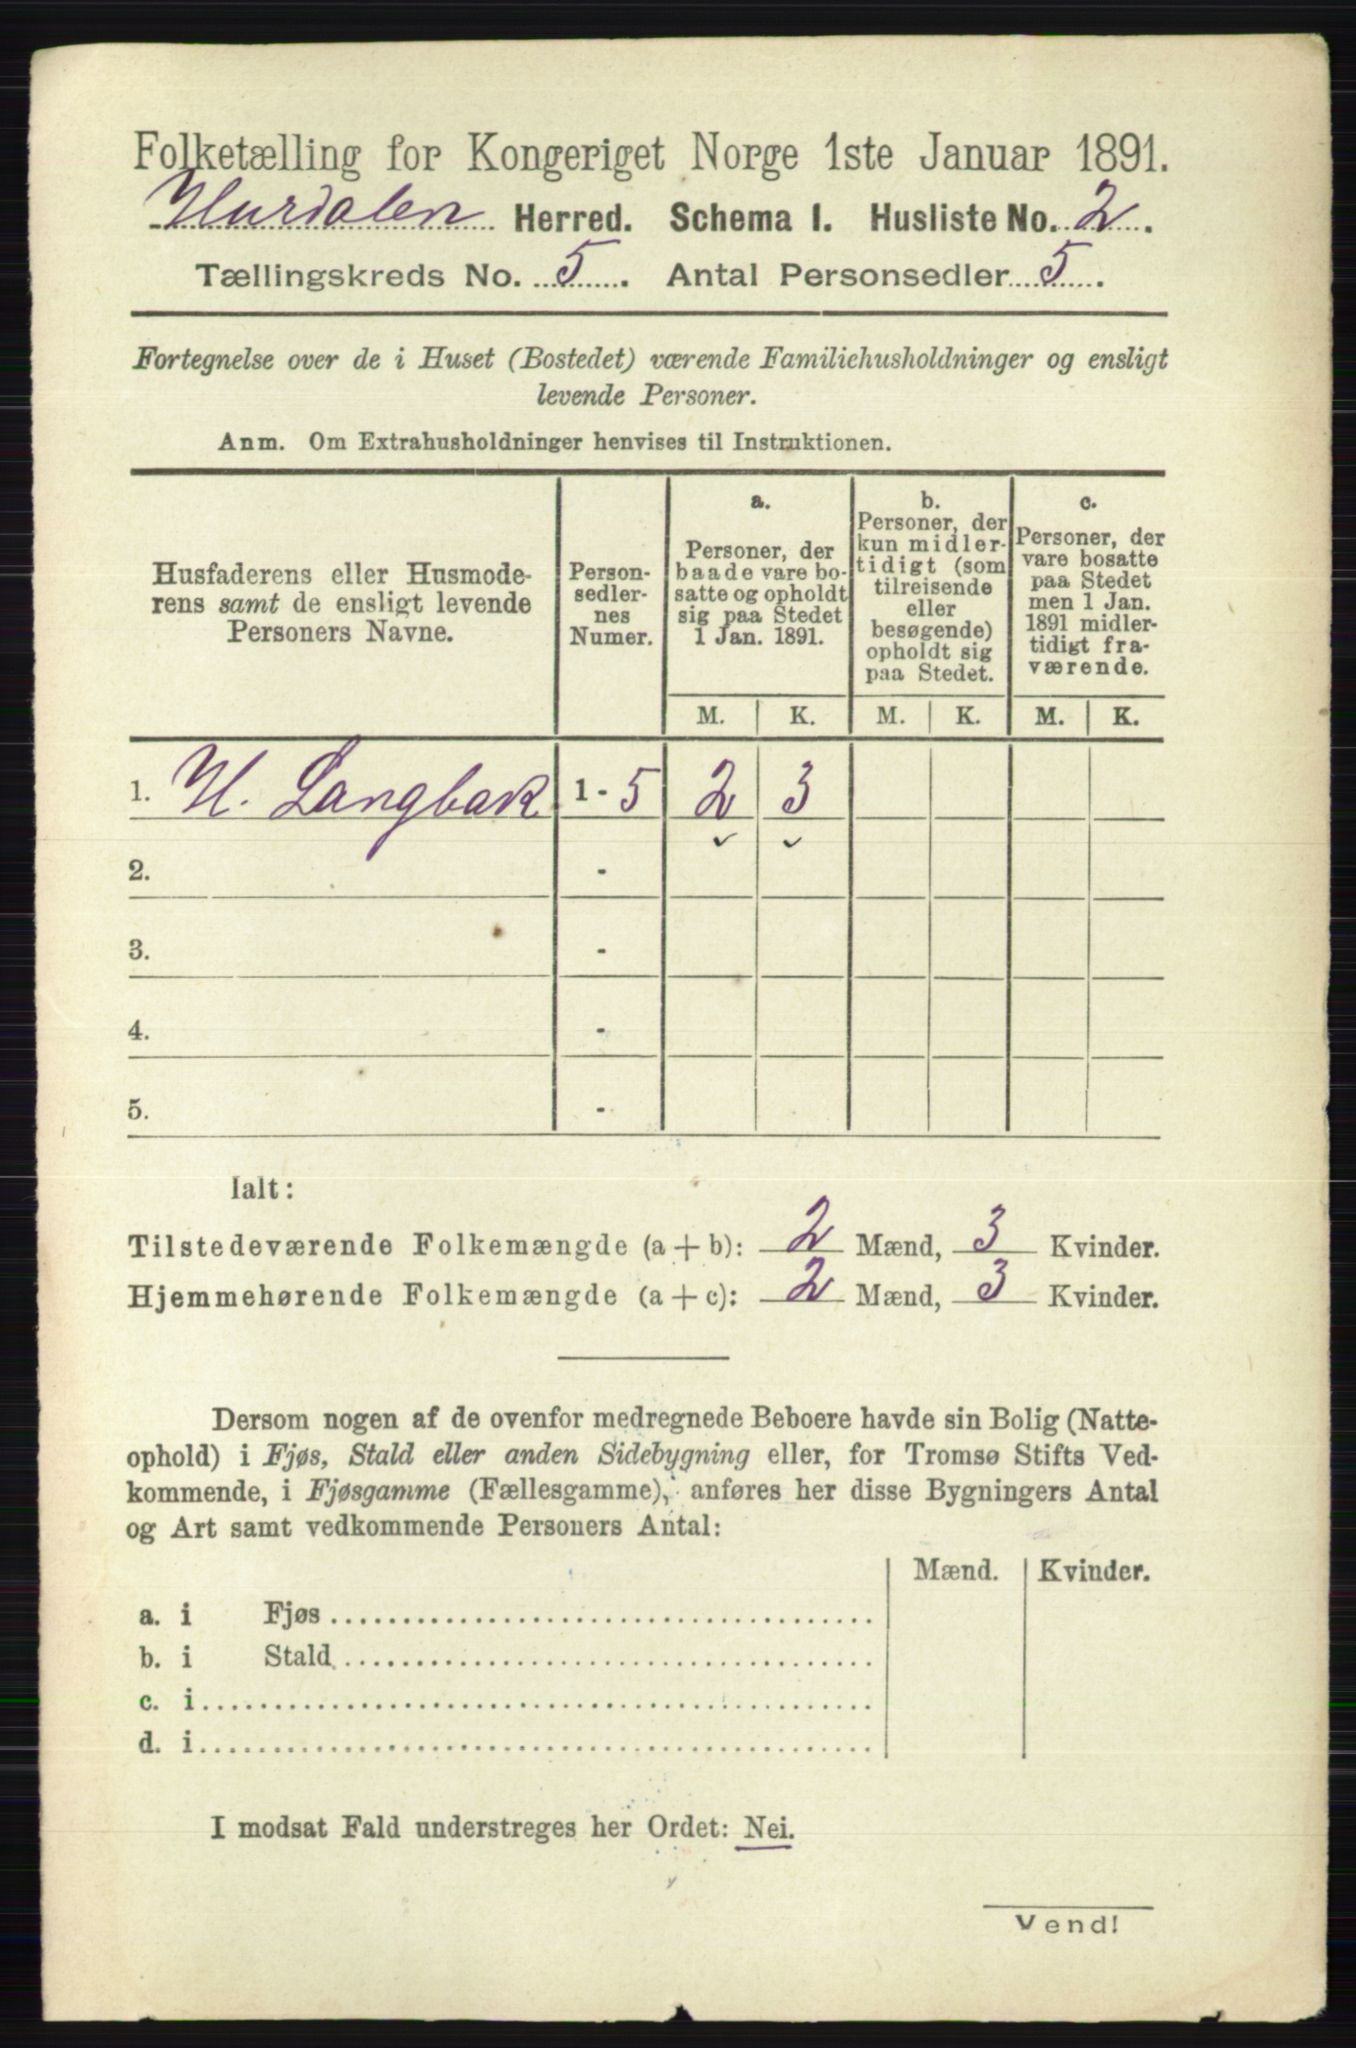 Folketælling for Kongeriget Norge 1ste Januar 1891.
Hurdalen Herred. Schema I. Husliste No. 2.
Tællingskreds No. 5. Antal Personsedler 5.
Fortegnelse over de i Huset (Bostedet) værende Familiehusholdninger og ensligt
levende Personer.
Anm. Om Extrahusholdninger henvises til Instruktionen.
Husfaderens eller Husmode-
rens samt de ensligt levende
Personers Navne.
Person-
sedler-
nes
Numer.
a.
Personer, der
baade vare bo-
satte og opholdt
sig paa Stedet
1 Jan. 1891.
b.
Personer, der
kun midler-
tidigt (som
tilreisende
eller
besøgende)
opholdt sig
paa Stedet.
c.
Personer, der
vare bosatte
paa Stedet
men 1 Jan.
1891 midler-
tidigt fra-
værende.
M. K. M. K. M. K.
1. H. Langbak 1 - 5 2 3
2. -
3. -
4. -
5. -
Ialt:
Tilstedeværende Folkemængde (a + b): 2 Mænd, 3 Kvinder.
Hjemmehørende Folkemængde (a + c): 2 Mænd, 3 Kvinder.
Dersom nogen af de ovenfor medregnede Beboere havde sin Bolig (Natte-
ophold) i Fjøs, Stald eller anden Sidebygning eller, for Tromsø Stifts Ved-
kommende, i Fjøsgamme (Fællesgamme), anføres her disse Bygningers Antal
og Art samt vedkommende Personers Antal:
Mænd. Kvinder.
a. i Fjøs
b. i Stald
c. i
d. i
I modsat Fald understreges her Ordet: Nei.
Vend!